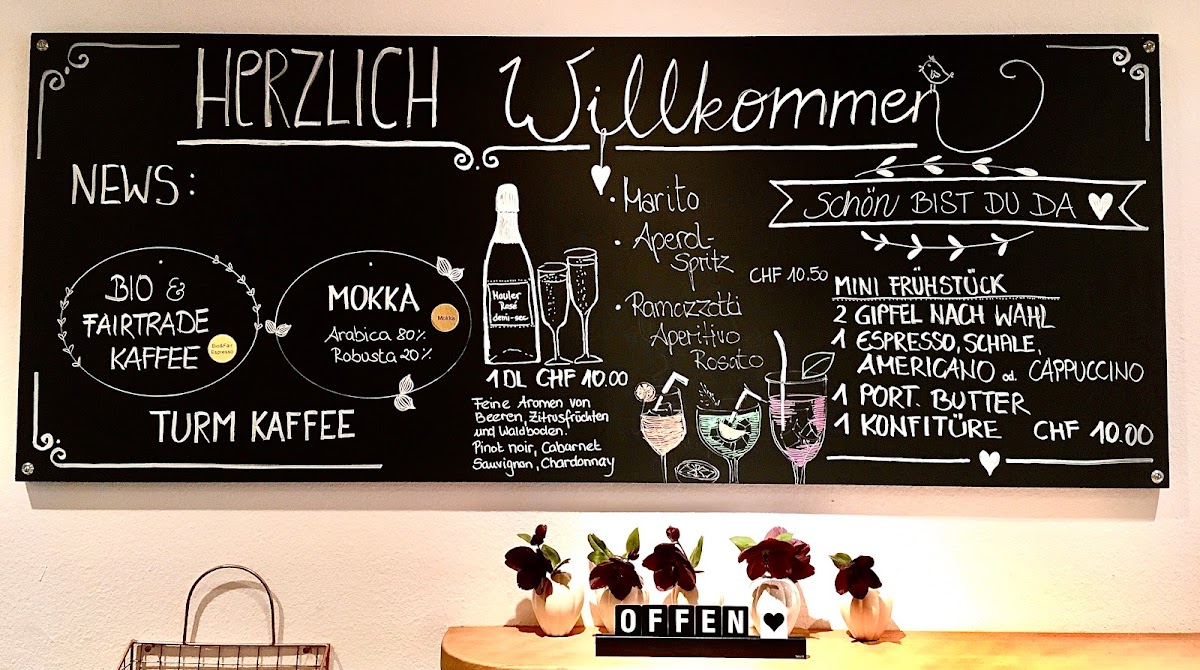 HERZLICH Willkommen
NEWS:
BIO &
FAIRTRADE
KAFFEE
Bio&Fair
Espresso
MOKKA
Mokka
Arabica 80%
Robusta 20%
TURM KAFFEE
Hauler
Rosé
demi-sec
1 DL CHF 10.00
Feine Aromen von
Beeren, Zitrusfrüchten
und Waldboden.
Pinot noir, Cabarnet
Sauvignon, Chardonnay
· Marito
· Aperol-
Spritz
CHF 10.50
· Ramazzotti
Aperitivo
Rosato
Schön BIST DU DA
MINI FRÜHSTÜCK
2 GIPFEL NACH WAHL
1 ESPRESSO, SCHALE,
AMERICANO od. CAPPUCCINO
1 PORT. BUTTER
1 KONFITÜRE CHF 10.00
OFFEN